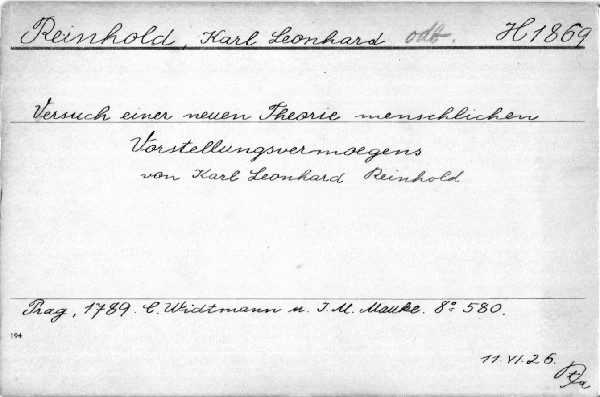 Reinhold, Karl Leonhard odb. H 1869
Versuch einer neuen Theorie menschlichen
Vorstellungsvermoegens
von Karl Leonhard Reinhold
Prag, 1789. C. Widtmann u. I. M. Mauke. 8° 580.
194
11.VI.26.